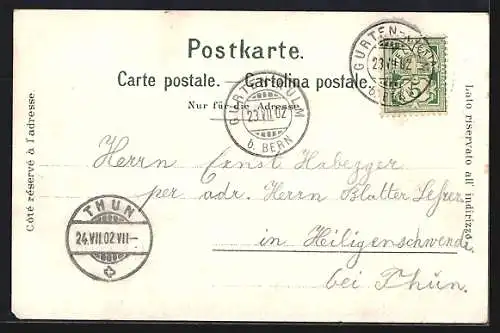 Postkarte.
Carte postale. — Cartolina postale.
Nur für die Adresse.
Côté réservé à l'adresse
Lato riservato all' indirizzo.
GURTEN-KULM
23.VII.02
b. BERN
GURTEN-KULM
23.VII.02
b. BERN
5
Herrn Ernst Habegger
per adr. Herrn Blatter Lehrer
in Heiligenschwendi
bei Thun.
THUN
24.VII.02 VII-